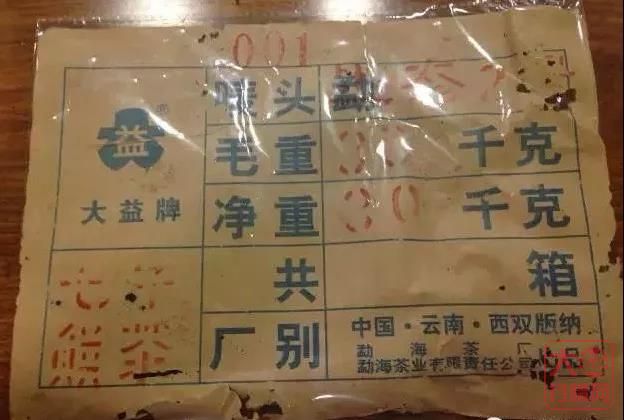 001
益
大益牌
唛头 勐
毛重 千克
净重 30 千克
共 箱
七子
茶
厂别 中国·云南·西双版纳
勐海茶厂
勐海茶业有限责任公司
品